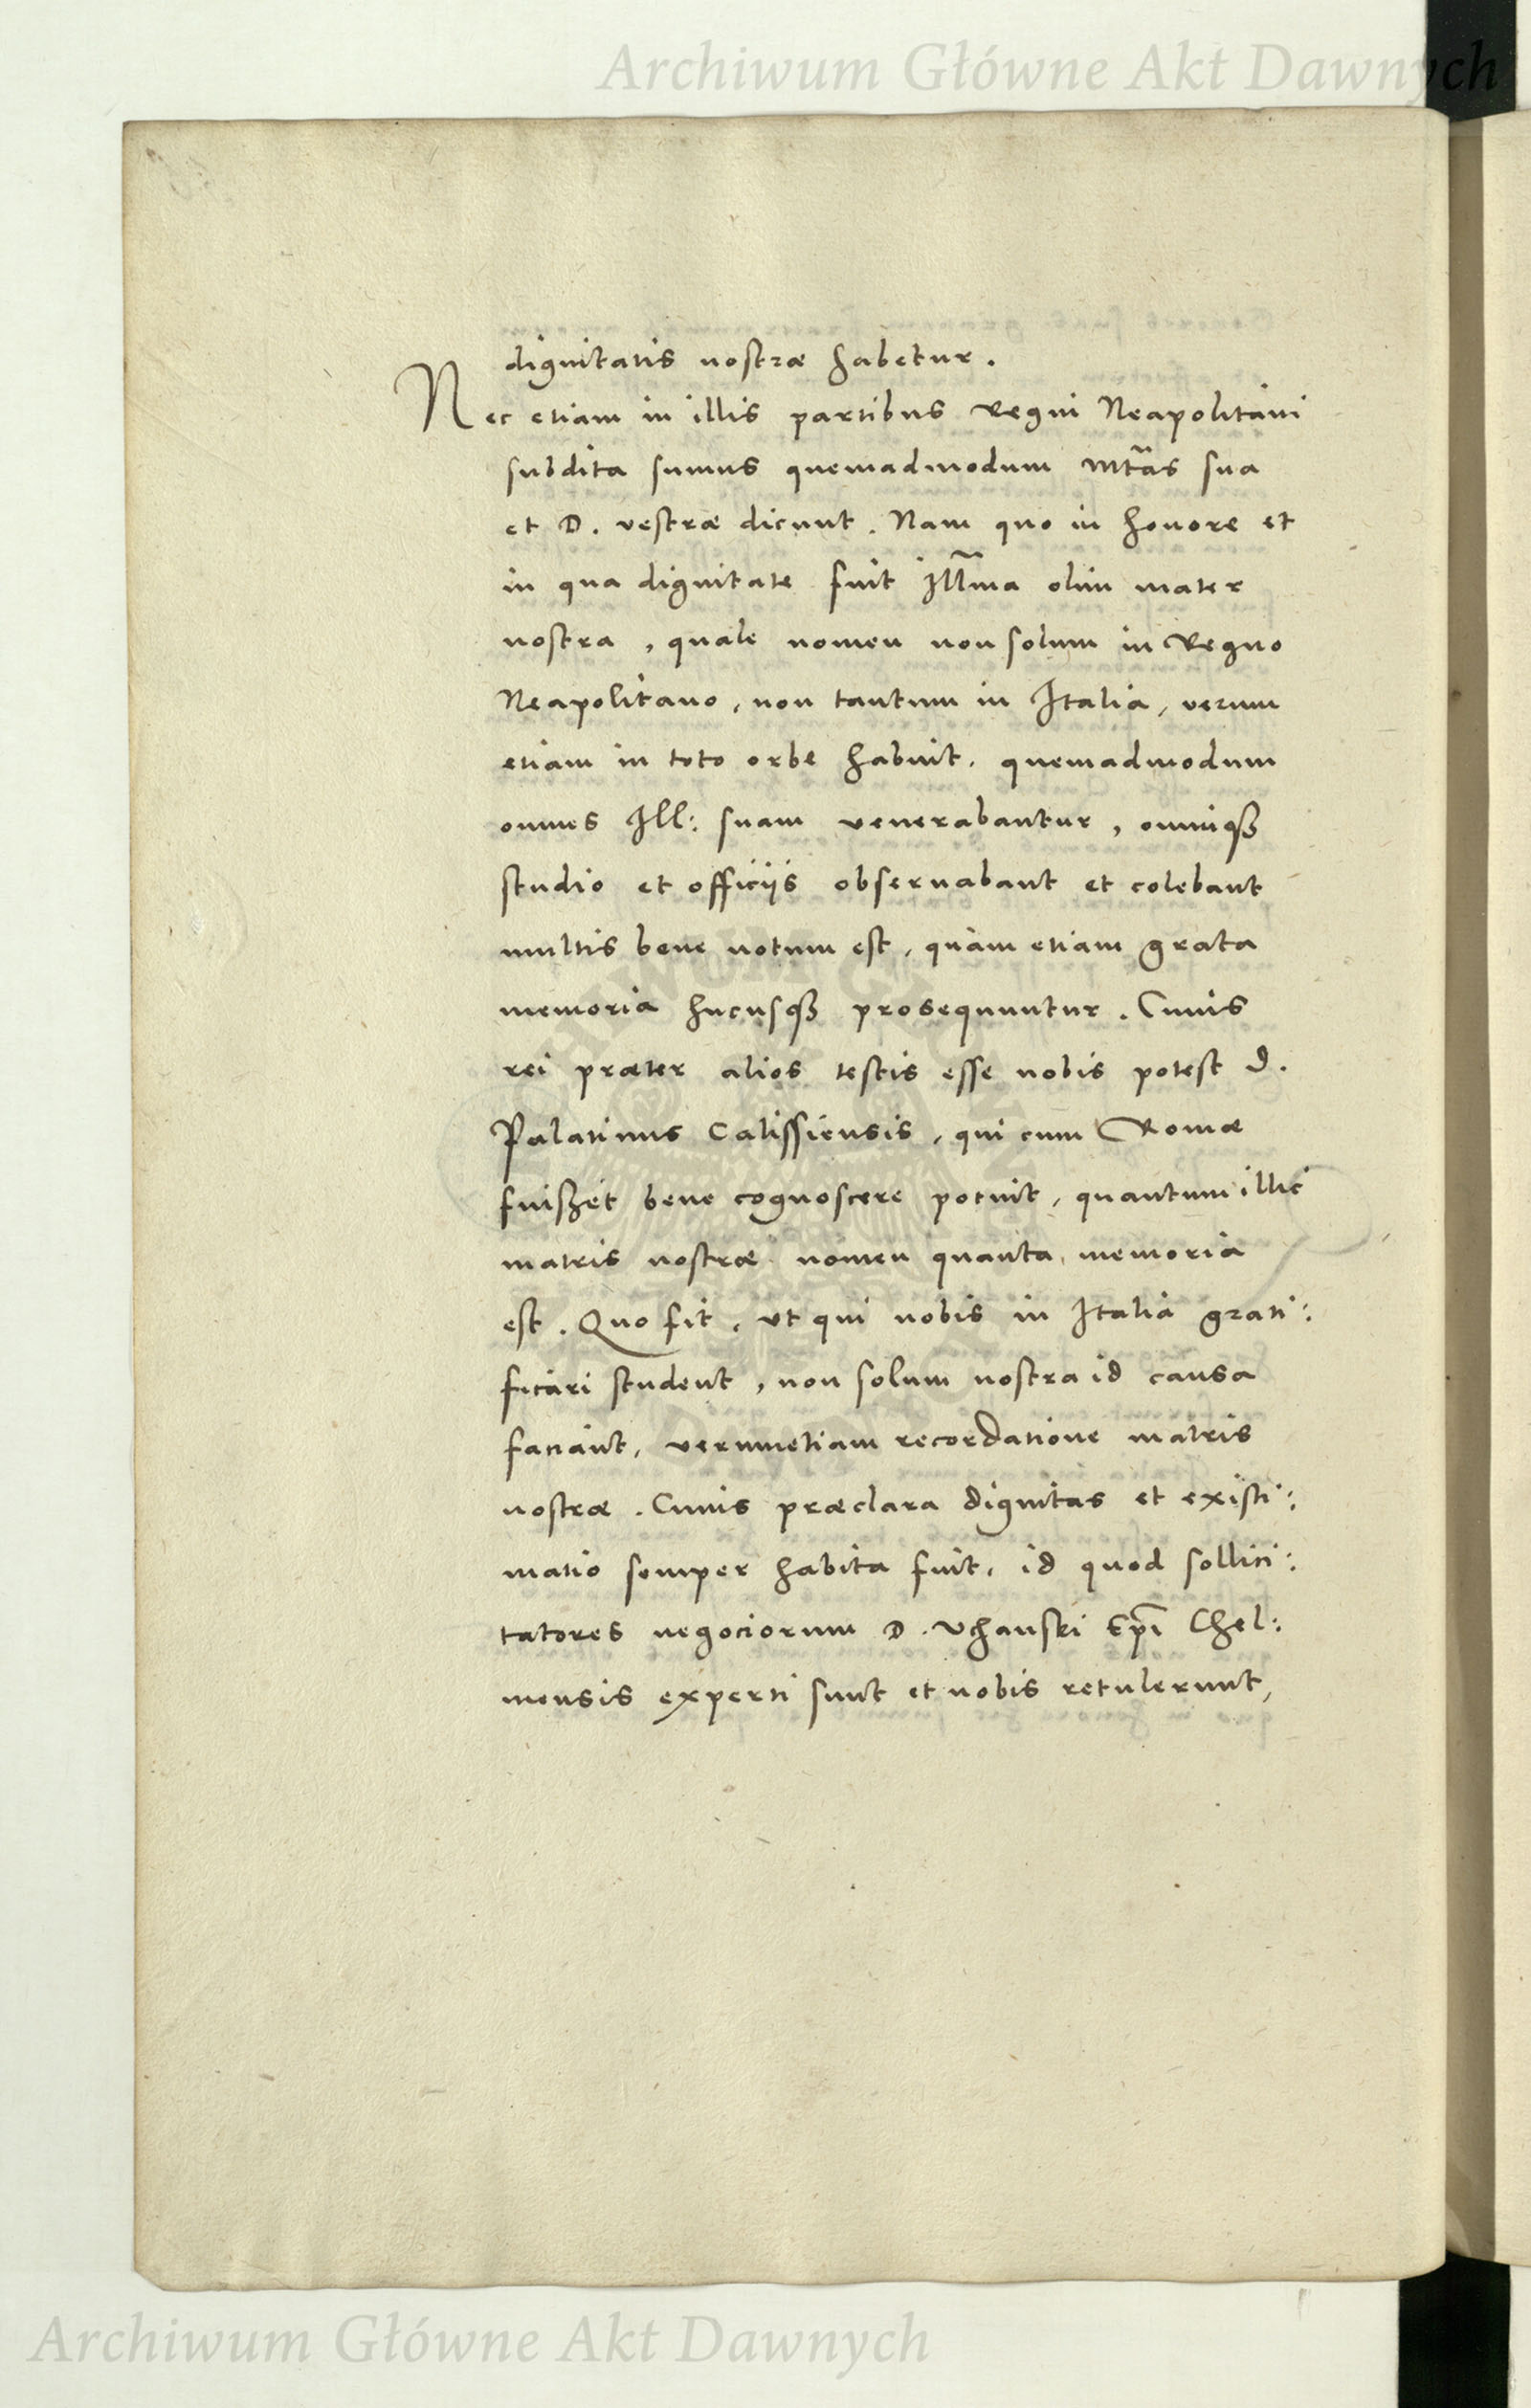 Archiwum Główne Akt Dawnych
dignitatis nostræ habetur.
Nec etiam in illis partibus Regni Neapolitani
subdita sumus quemadmodum Mt̃as sua
et D. vestræ dicunt. Nam quo in honore et
in qua dignitate fuit Ill̃ma olim mater
nostra, quale nomen non solum in Regno
Neapolitano, non tantum in Italia, verum
etiam in toto orbe habuit. quemadmodum
omnes Ill: suam venerabantur, omniqȝ
studio et officijs obseruabant et colebant
multis bene notum est, quàm etiam grata
memoria hucusqȝ prosequuntur. Cuius
rei præter alios testis esse nobis potest D.
Palatinus Calissiensis, qui cum Romæ
fuisßet bene cognoscere potuit, quantum illic
matris nostræ nomen quanta memoria
est. Quo fit, ut qui nobis in Italia grati:
ficari student, non solum nostra id causa
faciant, verumetiam recordatione matris
nostræ. Cuius præclara dignitas et existi:
matio semper habita fuit, id quod sollici:
tatores negociorum D. Vchanski Ep̃i Chel:
mensis experti sunt et nobis retulerunt,
Archiwum Główne Akt Dawnych